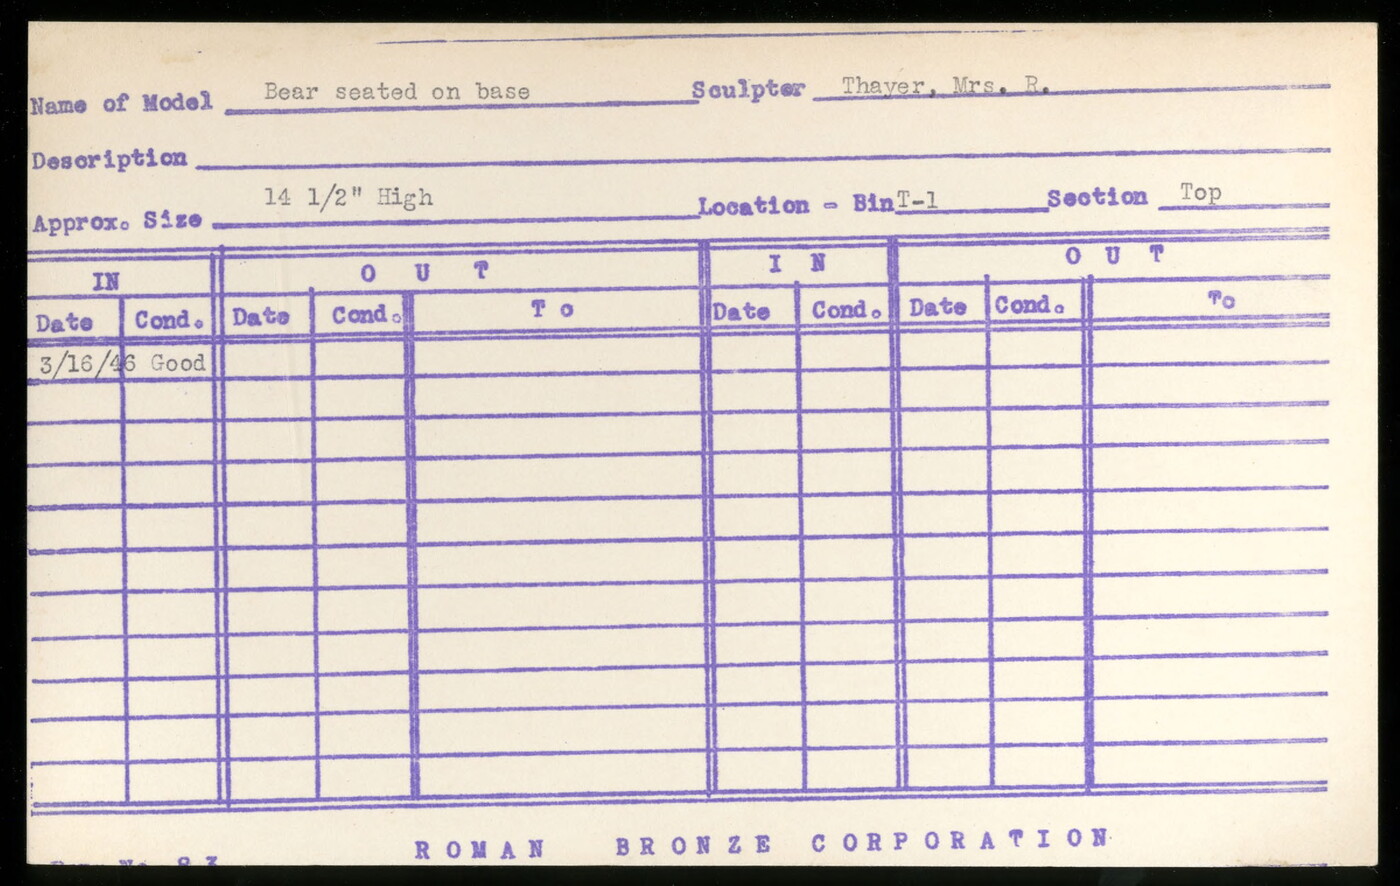 Name of Model Bear seated on base Sculptor Thayer, Mrs. R.
Description
Approx. Size 14 1/2" High Location - Bin T-1 Section Top
IN O U T I N O U T
Date Cond. Date Cond. To Date Cond. Date Cond. To
3/16/46 Good
ROMAN BRONZE CORPORATION